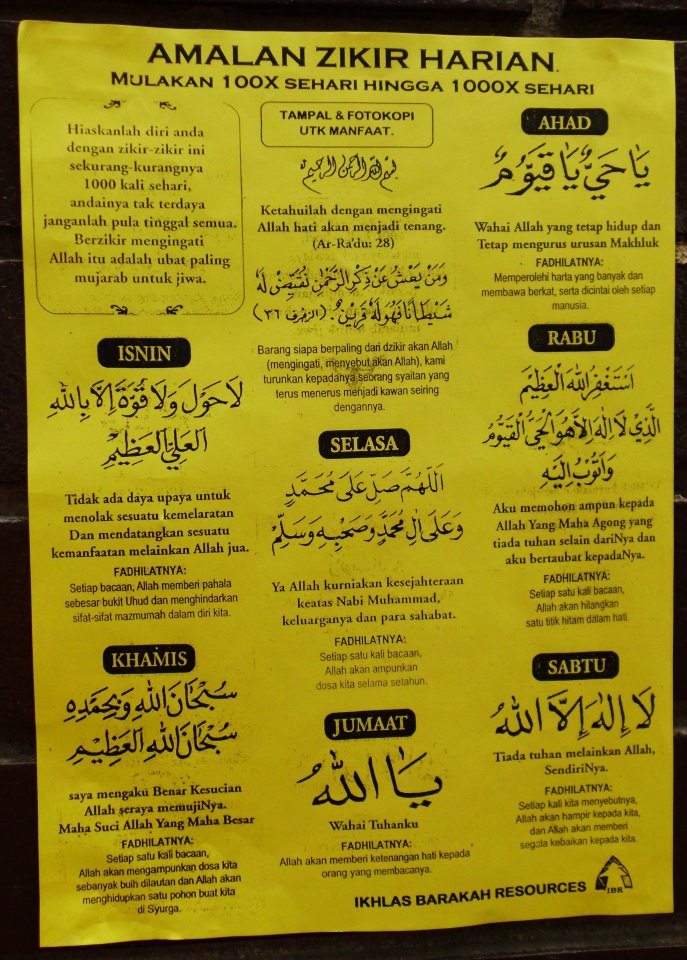 AMALAN ZIKIR HARIAN.
MULAKAN 100X SEHARI HINGGA 1000X SEHARI
Hiaskanlah diri anda
dengan zikir-zikir ini
sekurang-kurangnya
1000 kali sehari,
andainya tak terdaya
janganlah pula tinggal semua.
Berzikir mengingati
Allah itu adalah ubat paling
mujarab untuk jiwa.
TAMPAL & FOTOKOPI
UTK MANFAAT.
بسم الله الرحمن الرحيم
Ketahuilah dengan mengingati
Allah hati akan menjadi tenang.
(Ar-Ra'du: 28)
وَمَنْ يَعْشُ عَنْ ذِكْرِ الرَّحْمٰنِ نُقَيِّضْ لَهُ
شَيْطَانًا فَهُوَ لَهُ قَرِيْنٌ (الزخرف ٣٦)
Barang siapa berpaling dari dzikir akan Allah
(mengingati, menyebut akan Allah), kami
turunkan kepadanya seorang syaitan yang
terus menerus menjadi kawan seiring
dengannya.
AHAD
يَا حَيُّ يَا قَيُّوْمُ
Wahai Allah yang tetap hidup dan
Tetap mengurus urusan Makhluk
FADHILATNYA:
Memperolehi harta yang banyak dan
membawa berkat, serta dicintai oleh setiap
manusia.
ISNIN
لَا حَوْلَ وَلَا قُوَّةَ إِلَّا بِاللهِ
الْعَلِيِّ الْعَظِيْمِ
Tidak ada daya upaya untuk
menolak sesuatu kemelaratan
Dan mendatangkan sesuatu
kemanfaatan melainkan Allah jua.
FADHILATNYA:
Setiap bacaan, Allah memberi pahala
sebesar bukit Uhud dan menghindarkan
sifat-sifat mazmumah dalam diri kita.
SELASA
اَللّٰهُمَّ صَلِّ عَلَى مُحَمَّدٍ
وَعَلَى اٰلِ مُحَمَّدٍ وَصَحْبِهِ وَسَلِّمْ
Ya Allah kurniakan kesejahteraan
keatas Nabi Muhammad,
keluarganya dan para sahabat.
FADHILATNYA:
Setiap satu kali bacaan,
Allah akan ampunkan
dosa kita selama setahun.
RABU
اَسْتَغْفِرُ اللهَ الْعَظِيْمَ
الَّذِيْ لَا اِلٰهَ اِلَّا هُوَ الْحَيُّ الْقَيُّوْمُ
وَاَتُوْبُ اِلَيْهِ
Aku memohon ampun kepada
Allah Yang Maha Agong yang
tiada tuhan selain dariNya dan
aku bertaubat kepadaNya.
FADHILATNYA:
Setiap satu kali bacaan,
Allah akan hilangkan
satu titik hitam dalam hati.
KHAMIS
سُبْحَانَ اللهِ وَبِحَمْدِهِ
سُبْحَانَ اللهِ الْعَظِيْمِ
saya mengaku Benar Kesucian
Allah seraya memujiNya.
Maha Suci Allah Yang Maha Besar
FADHILATNYA:
Setiap satu kali bacaan,
Allah akan mengampunkan dosa kita
sebanyak buih dilautan dan Allah akan
menghidupkan satu pohon buat kita
di Syurga.
JUMAAT
يَا اللهُ
Wahai Tuhanku
FADHILATNYA:
Allah akan memberi ketenangan hati kepada
orang yang membacanya.
SABTU
لَا إِلٰهَ إِلَّا اللهُ
Tiada tuhan melainkan Allah,
SendiriNya.
FADHILATNYA:
Setiap kali kita menyebutnya,
Allah akan hampir kepada kita,
dan Allah akan memberi
segala kebaikan kepada kita.
IKHLAS BARAKAH RESOURCES
IBR